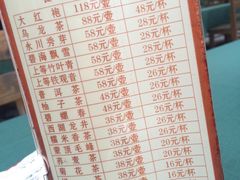 大红袍 118元/壶 48元/杯
乌龙茶 88元/壶 28元/杯
永川秀芽 58元/壶 28元/杯
碧海飘雪 58元/壶 28元/杯
上等竹叶青 58元/壶 28元/杯
上等铁观音 58元/壶 28元/杯
普洱茶 58元/壶 28元/杯
柚子茶 58元/壶 28元/杯
碧螺春 38元/壶 26元/杯
西湖龙井 38元/壶 26元/杯
糯米香茶 38元/壶 26元/杯
信阳毛峰 38元/壶 26元/杯
荞麦茶 38元/壶 20元/杯
菊花茶 38元/壶 16元/杯